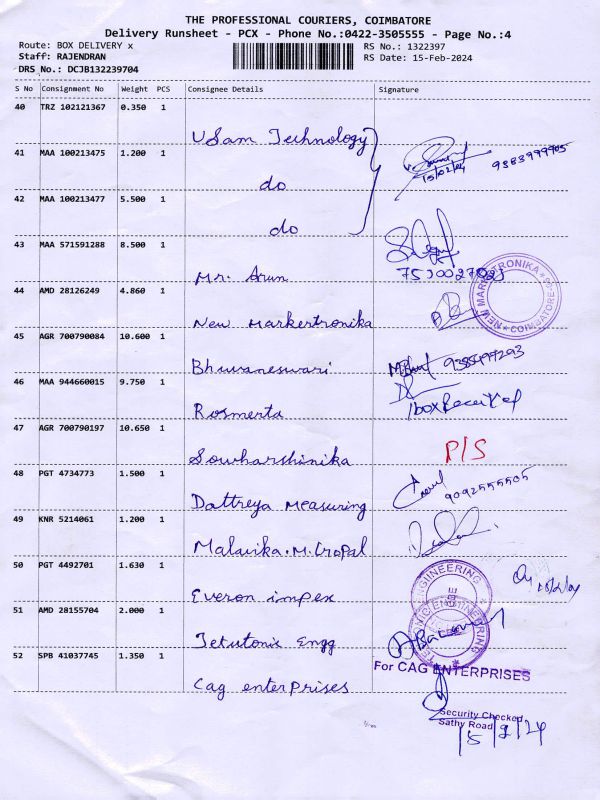 THE PROFESSIONAL COURIERS, COIMBATORE
Delivery Runsheet - PCX - Phone No.:0422-3505555 - Page No.:4
Route: BOX DELIVERY x
RS No.: 1322397
Staff: RAJENDRAN
RS Date: 15-Feb-2024
DRS No.: DCJB132239704
S No Consignment No Weight PCS Consignee Details Signature
40 TRZ 102121367 0.350 1
USam Technology
41 MAA 100213475 1.200 1
15/02/24 9383999905
do
42 MAA 100213477 5.500 1
do
43 MAA 571591288 8.500 1
Mr. Arun
44 AMD 28126249 4.860 1
NEW MARKERTRONIKA COIMBATORE
New Markertronika
45 AGR 700790084 10.600 1
Bhuvaneswari
46 MAA 944660015 9.750 1
1 box Received
Rosmerta
47 AGR 700790197 10.650 1
P/S
Sowharshinika
48 PGT 4734773 1.500 1
9092555505
Dattreya Measuring
49 KNR 5214061 1.200 1
Malavika.M.Gopal
50 PGT 4492701 1.630 1
Everon impex
ENGINEERING
51 AMD 28155704 2.000 1
Tetutonic Engg
52 SPB 41037745 1.350 1
For CAG ENTERPRISES
Cag enterprises
Security Checked
Sathy Road
15/2/24